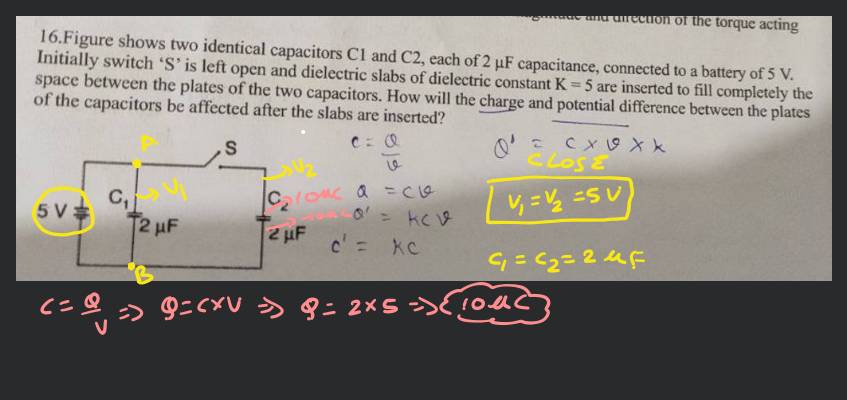 and direction of the torque acting
16.Figure shows two identical capacitors C1 and C2, each of 2 μF capacitance, connected to a battery of 5 V.
Initially switch ‘S’ is left open and dielectric slabs of dielectric constant K = 5 are inserted to fill completely the
space between the plates of the two capacitors. How will the charge and potential difference between the plates
of the capacitors be affected after the slabs are inserted?
S
C = Q/V
Q' = C x V x K
CLOSE
V2
C1 V1
C2 10uC Q = CV
V1 = V2 = 5 V
5 V
Q' = KCV
2 μF
2 μF
C' = KC
C1 = C2 = 2 uF
B
C = Q/V => Q = C x V => Q = 2 x 5 => 10uC